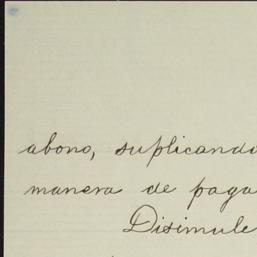 abono, suplicando
manera de paga
Disimule